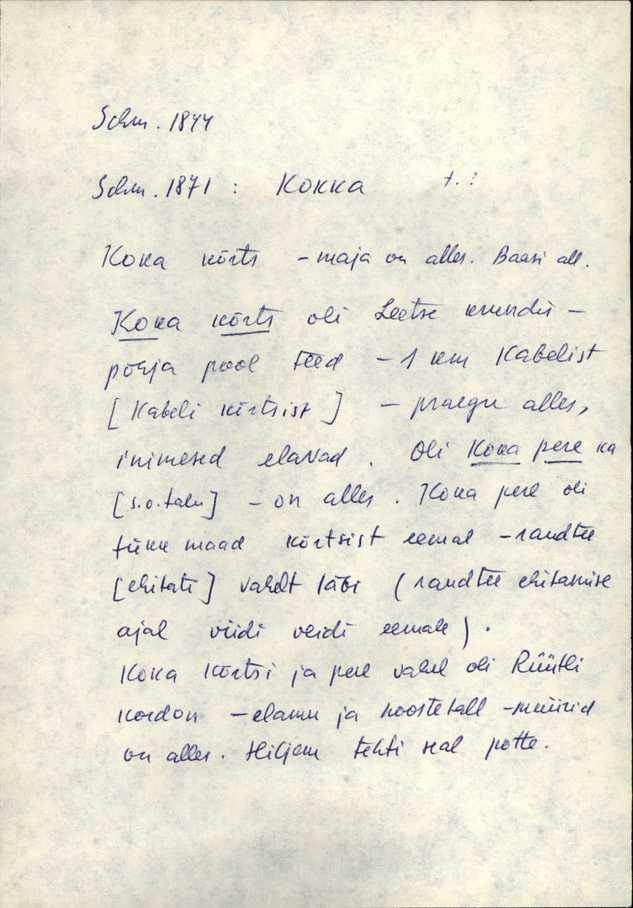 Schm. 1844
Schm. 1871 : KOKKA t. ?
Koka kõrts – maja on alles. Baasi all.
Koka kõrts oli Leetse krundis –
põhja pool teed – 1 km Kabelist
[Kabeli kõrtsist] – praegu alles,
inimesed elavad. Oli Koka pere ka
[s.o. talu] – on alles. Koka pere oli
tükk maad kõrtsist eemal – raudtee
[ehitati] vahelt läbi (raudtee ehitamise
ajal viidi veidi eemale).
Koka kõrtsi ja pere vahel oli Rüütli
kordon – elamu ja hoostetall – müürid
on alles. Hiljem tehti seal potte.